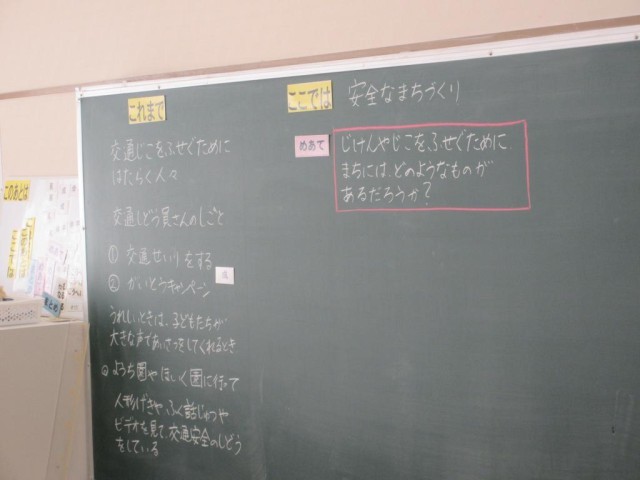 これまで
交通じこをふせぐために
はたらく人々
交通しどう員さんのしごと
① 交通せいりをする
② がいとうキャンペーン
うれしいときは、子どもたちが
大きな声であいさつをしてくれるとき
ようち園やほいく園に行って
人形げきやふく話じゅつや
ビデオを見て、交通安全のしどう
をしている
ここでは
安全なまちづくり
めあて
じけんやじこをふせぐために、
まちには、どのようなものが
あるだろうか?
このあとは
まとめ